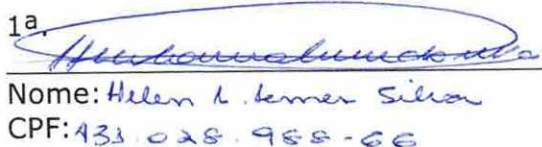 1ª.
Nome: Helen L. Lemer Silva
CPF: 431.028.988-66